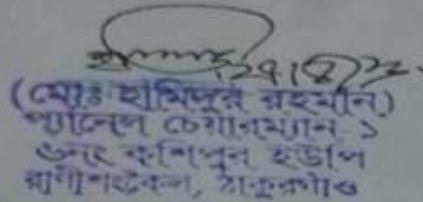 (মোঃ হামিদুর রহমান)
প্যানেল চেয়ারম্যান ১
৬নং কাশিপুর ইউপি
রাণীশংকৈল, ঠাকুরগাঁও